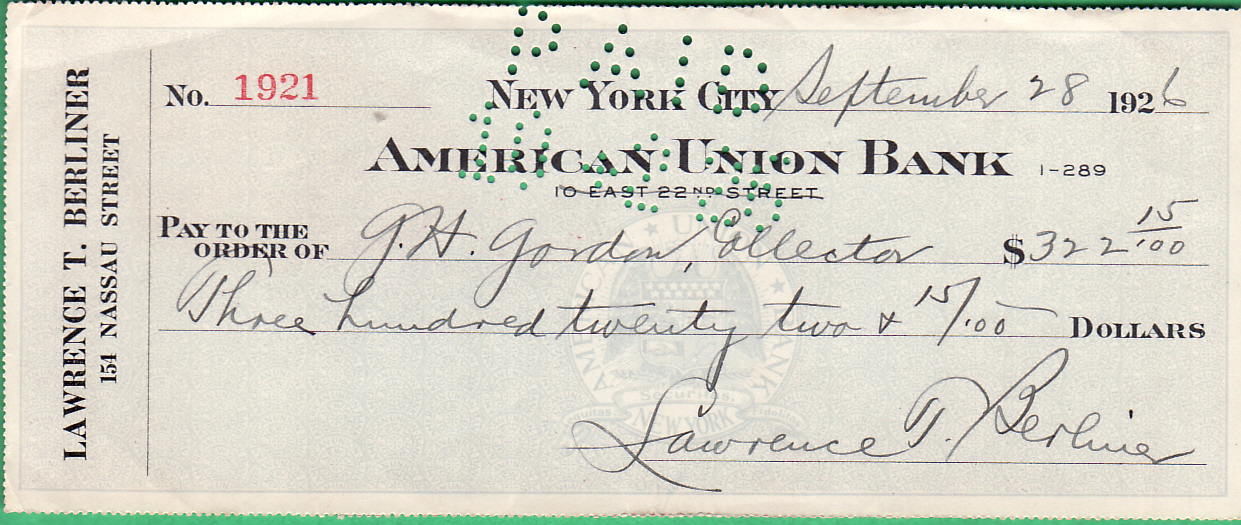 LAWRENCE T. BERLINER
154 NASSAU STREET
No. 1921 NEW YORK CITY September 28 1926
PAID
AMERICAN UNION BANK 1-289
10 EAST 22ND STREET
PAY TO THE
ORDER OF G. H. Gordon, Collector $322 15/100
Three hundred twenty two & 15/100 DOLLARS
AMERICAN UNION BANK
Securitas.
Fidelitas
NEW YORK
Lawrence T. Berliner